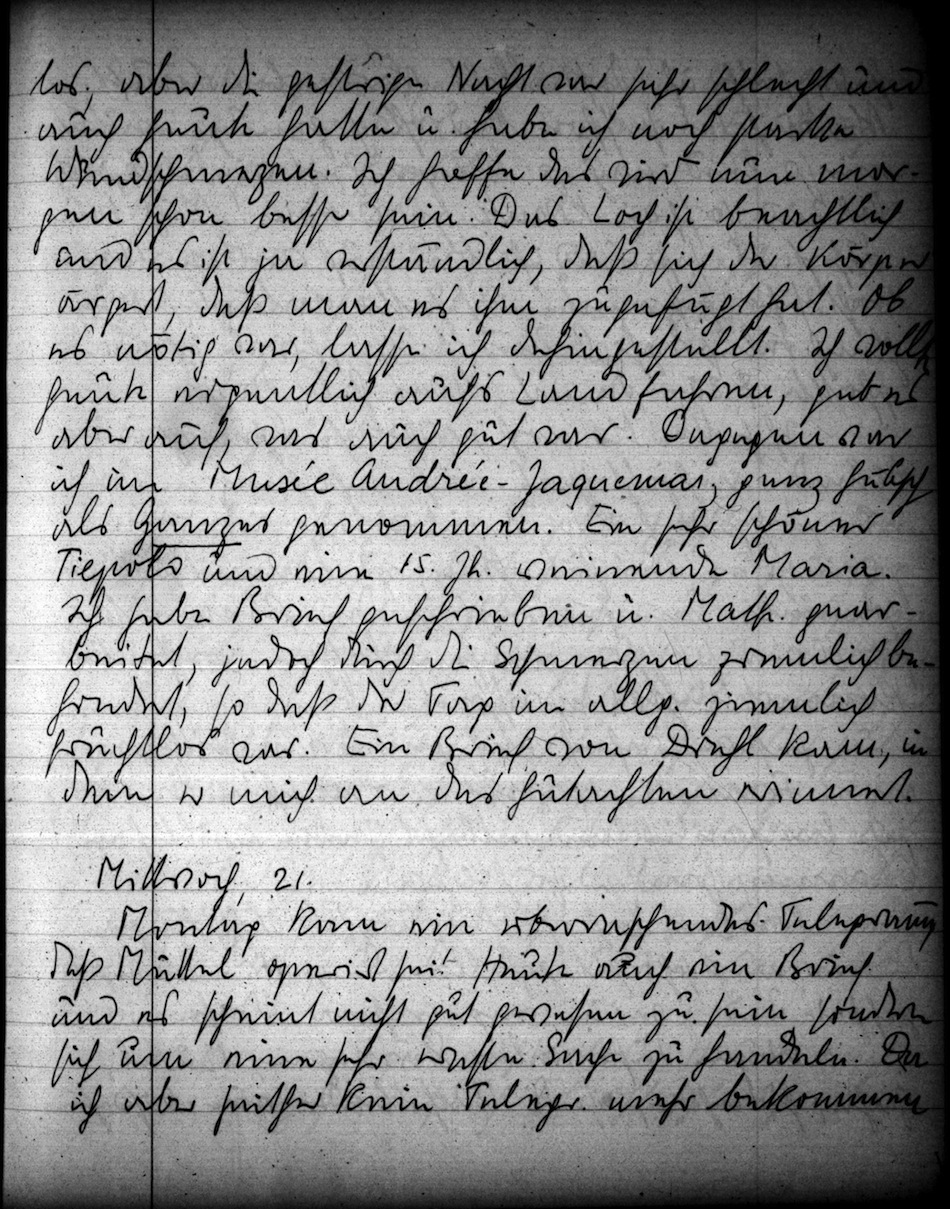 los, aber die gestrige Nacht war sehr schlecht und
auch heute hatte u. habe ich noch starke
Wundschmerzen. Ich hoffe das wird nun mor-
gen schon besser sein. Das Loch ist beachtlich
und es ist ja verständlich, daß sich der Körper
ärgert, daß man es ihm zugefügt hat. Ob
es nötig war, lasse ich dahingestellt. Ich wollte
heute eigentlich aufs Land fahren, gab es
aber auf, was auch gut war. Dagegen war
ich im Musée Andrée-Jaquemar, ganz hübsch
als Ganzes genommen. Ein sehr schöner
Tiepolo und eine 15. Jh. weinende Maria.
Ich habe Briefe geschrieben u. Math. gear-
beitet, jedoch durch die Schmerzen ziemlich be-
hindert, so daß der Tag im allg. ziemlich
fruchtlos war. Ein Brief von Diehl kam, in
dem er mich an das Gutachten erinnert.
Mittwoch, 21.
Montag kam ein überraschendes Telegramm
daß Muttel operiert sei. Heute auch ein Brief
und es scheint nicht gut gewesen zu sein sondern
sich um eine sehr ernste Sache zu handeln. Da
ich aber seither kein Telegr. mehr bekommen